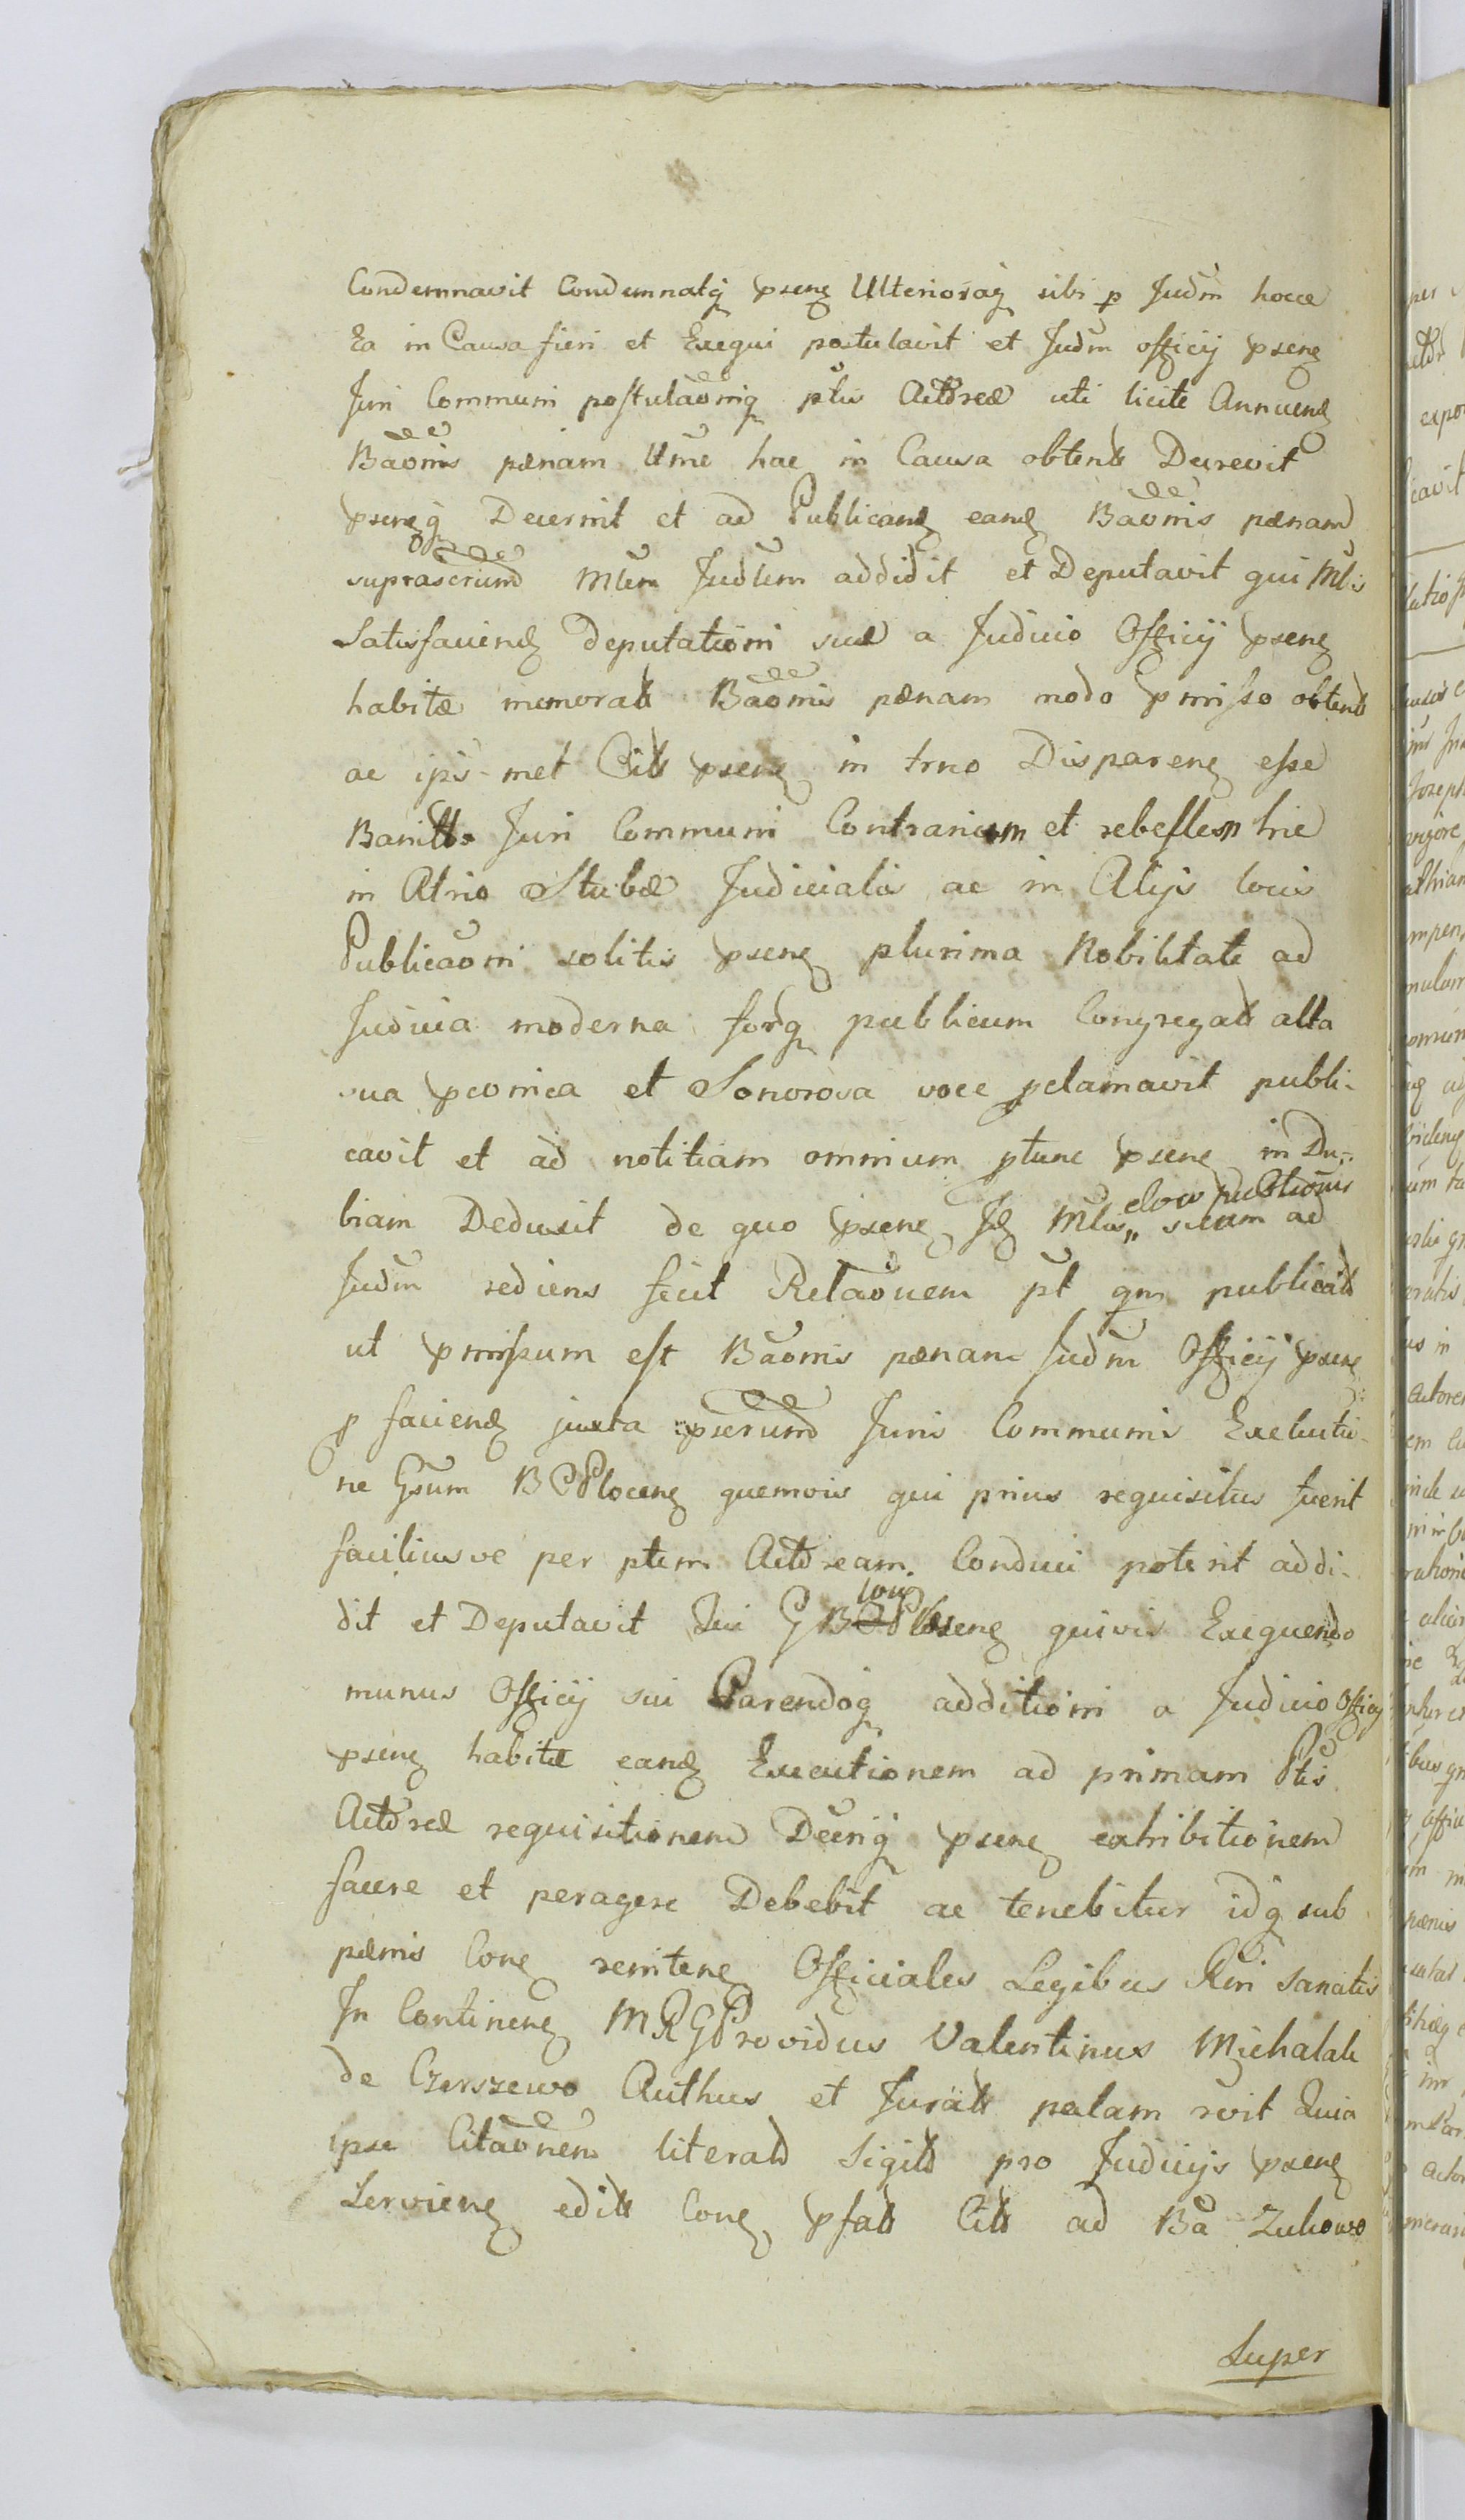 Condemnavit Condemnatq psenq Ulterioraq sibi p Judm hocce
Ea in Causa fieri et Exequi postulavit et Judm officij psenq
Juri Communi postulaoniq ptis Actoreæ uti licite Annuenq
Baonis pænam Ume hac in Causa obtentt Decrevit
psenqq Decernit et ad Publicanq eanq Baonis pænam
suprascrum Mlem Judlem addidit et Deputavit qui Mlis
Satisfacienq deputationi suæ a Judicio Officij psenq
habitæ memoratt Baonis pænam modo pmisso obtentt
ac ips-met Citt psenq in trno Disparenq esse
Banitto Juri Communi Contrarium et rebellem hic
in Atrio Stubæ Judicialis ac in Alijs locis
Publicaoni solitis psenq plurima Nobilitate ad
Judicia moderna forq publicum Congregatt alta
sua pconica et Sonorosa voce pclamavit publi-
cavit et ad notitiam omnium ptunc psenq in Du-
biam Deduxit de quo psenq Jq Mlis,, suum ad
Judm rediens fecit Relaonem pt qm publicatt
ut pmissum est Baonis pænam Judm Officij psenq
p facienq juxta pscrum Juris Communis Executio-
ne Gsum BCPlocenq quemvis qui prius requisitus fuerit
faciliusve per ptem Actoream Conduci poterit addi-
dit et Deputavit Qui G B Plocenq quivis Exequendo
munus Officij sui Parendoq additioni a Judicio Officij
psenq habitæ eanq Executionem ad primam Ptis
Actoreæ requisitionem Decriq psenq exhibitionem
facere et peragere Debebit ac tenebitur idq sub
pænis Conq renitenq Officiales Legibus Rni sancitis
In Continenq MRGProvidus Valentinus Michalak
de Czerszewo Authus et Juratt palam rvit Quia
ipse Citaonem literatt Sigitt pro Judicijs psenq
Servienq editt Conq pfatt Citt ad Ba Zukowo
Super